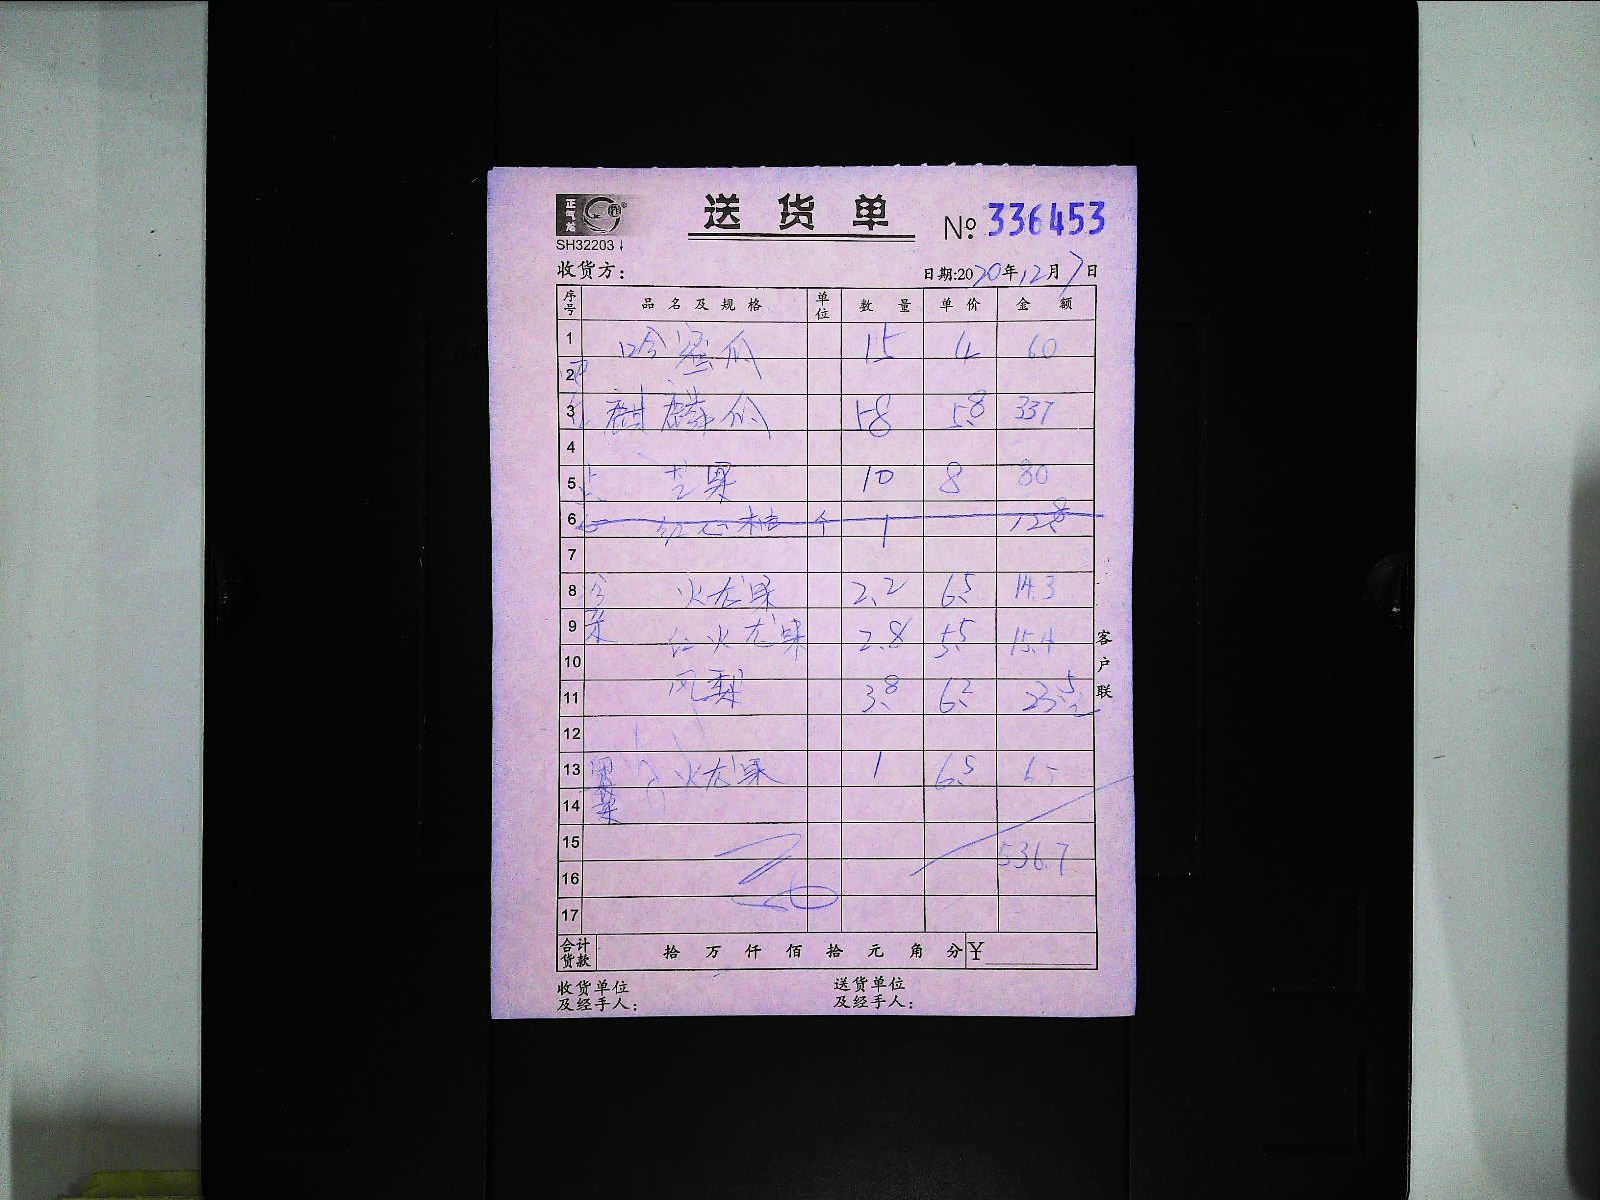 正气
送货单
№ 336453
SH32203
收货方：
日期:2020年12月7日
序号 品名及规格 单位 数量 单价 金额
1 哈蜜瓜 15 4 60
2
3 麒麟瓜 58 5.8 337
4
5 芒果 10 8 80
6 红心柚 个 1 12.8
7
8 火龙果 2.2 6.5 14.3
9 红火龙果 2.8 5.5 15.4
10
11 风梨 3.8 6.2 23.5
12
13 火龙果 1 6.5 6.5
14
15 536.7
16
17
客户联
合计货款 拾万仟佰拾元角分 ¥
收货单位 送货单位
及经手人： 及经手人：